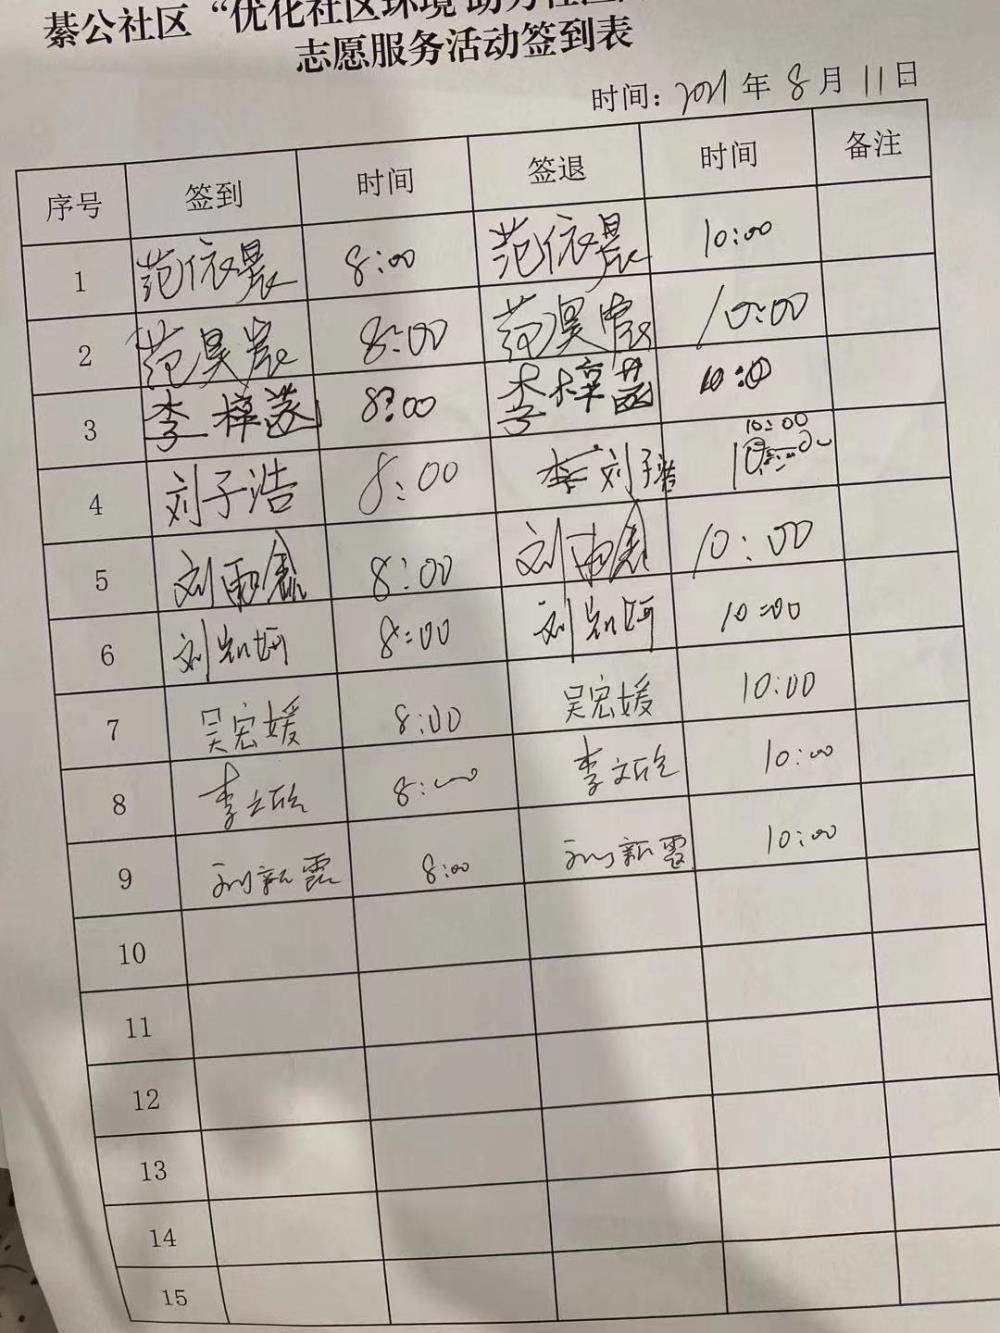 綦公社区“优化社区环境 助力社区
志愿服务活动签到表
时间：2021年8月11日
序号 签到 时间 签退 时间 备注
1 范依晨 8:00 范依晨 10:00
2 范昊宸 8:00 范昊宸 10:00
3 李梓菡 8:00 李梓菡 10:00
10:00
4 刘子浩 8:00 刘子浩
5 刘雨鑫 8:00 刘雨鑫 10:00
6 刘 8:00 刘 10:00
7 吴宏媛 8:00 吴宏媛 10:00
8 李文 8:00 李文 10:00
9 刘新霞 8:00 刘新霞 10:00
10
11
12
13
14
15